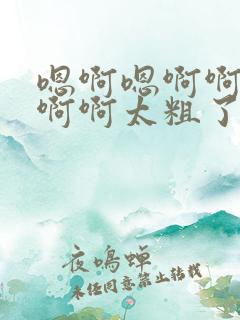 嗯啊嗯啊啊
啊啊太粗了
夜鸣蝉
未经同意禁止转载